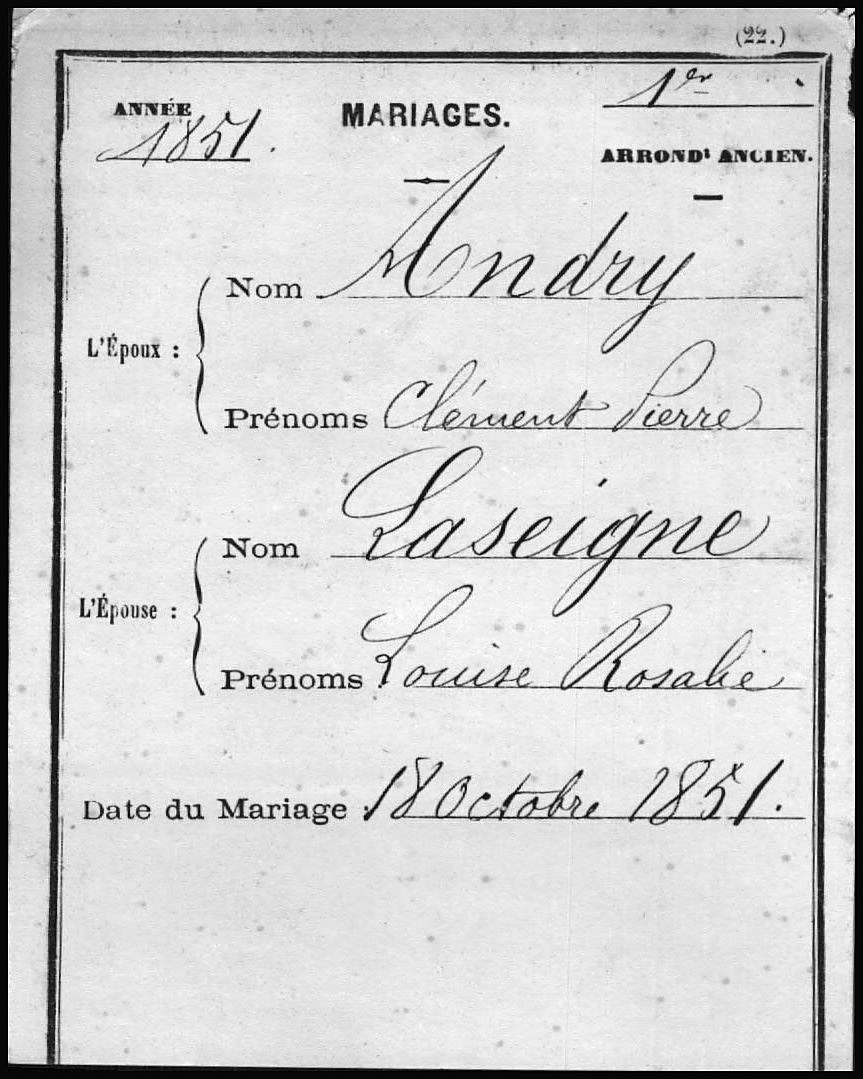 (22.)
ANNÉE 1851.
MARIAGES.
1er
ARRONDt ANCIEN.
L'Époux :
Nom Andry
Prénoms Clément Pierre
L'Épouse :
Nom Laseigne
Prénoms Louise Rosalie
Date du Mariage 18 Octobre 1851.